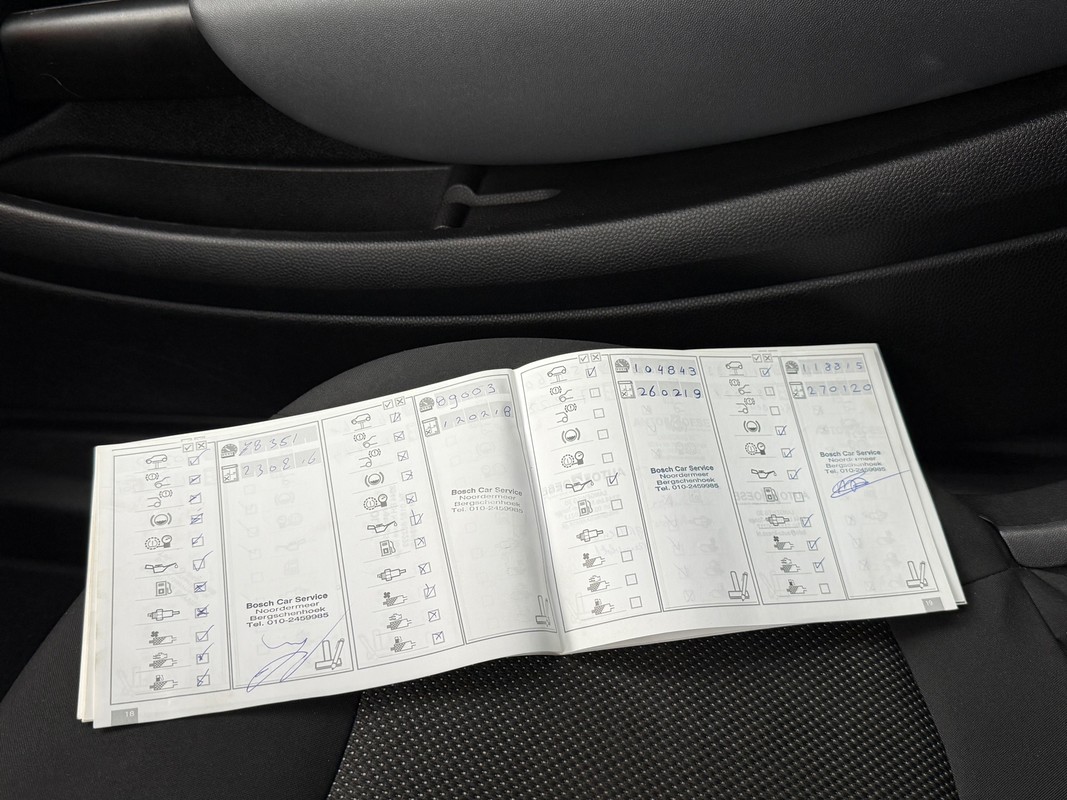 78351
230816
Bosch Car Service
Noordermeer
Bergschenhoek
Tel. 010-2459985
89003
120218
Bosch Car Service
Noordermeer
Bergschenhoek
Tel. 010-2459985
104843
260219
Bosch Car Service
Noordermeer
Bergschenhoek
Tel. 010-2459985
270120
Bosch Car Service
Noordermeer
Bergschenhoek
Tel. 010-2459985
18